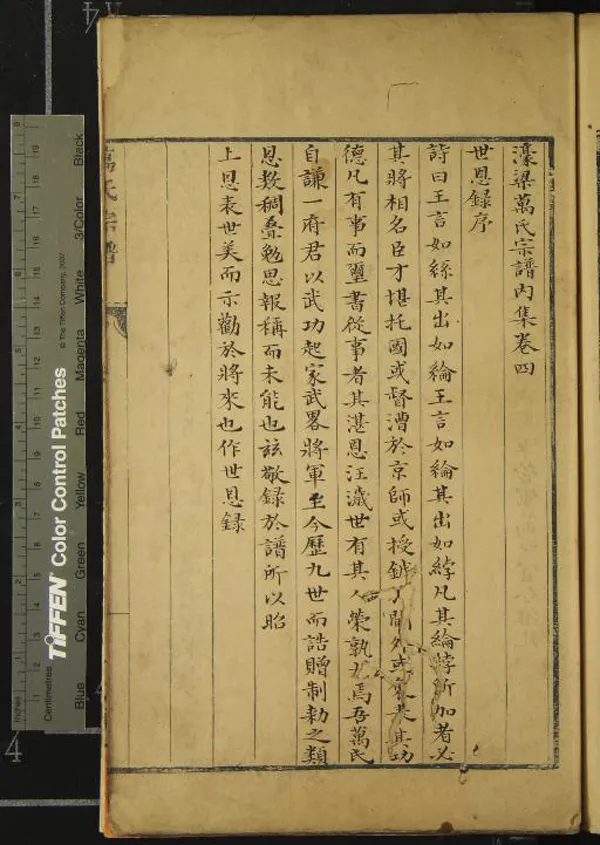 濠梁萬氏宗譜內集卷四
世恩録序
詩曰王言如絲其出如綸王言如綸其出如綍凡其綸綍所加者必
其將相名臣才堪托國或督漕於京師或授鉞于閫外或褒表其功
德凡有事而璽書從事者其湛恩汪濊世有其人榮孰尢焉吾萬氏
自謙一府君以武功起家武畧將軍至今歷九世而誥贈制勅之類
恩数稠疊勉思報稱而未能也玆敬録於譜所以昭
上恩表世美而示勸於將來也作世恩録
萬氏宗譜
Inches
Centimetres
TIFFEN Color Control Patches
© The Tiffen Company, 2007
Blue
Cyan
Green
Yellow
Red
Magenta
White
3/Color
Black